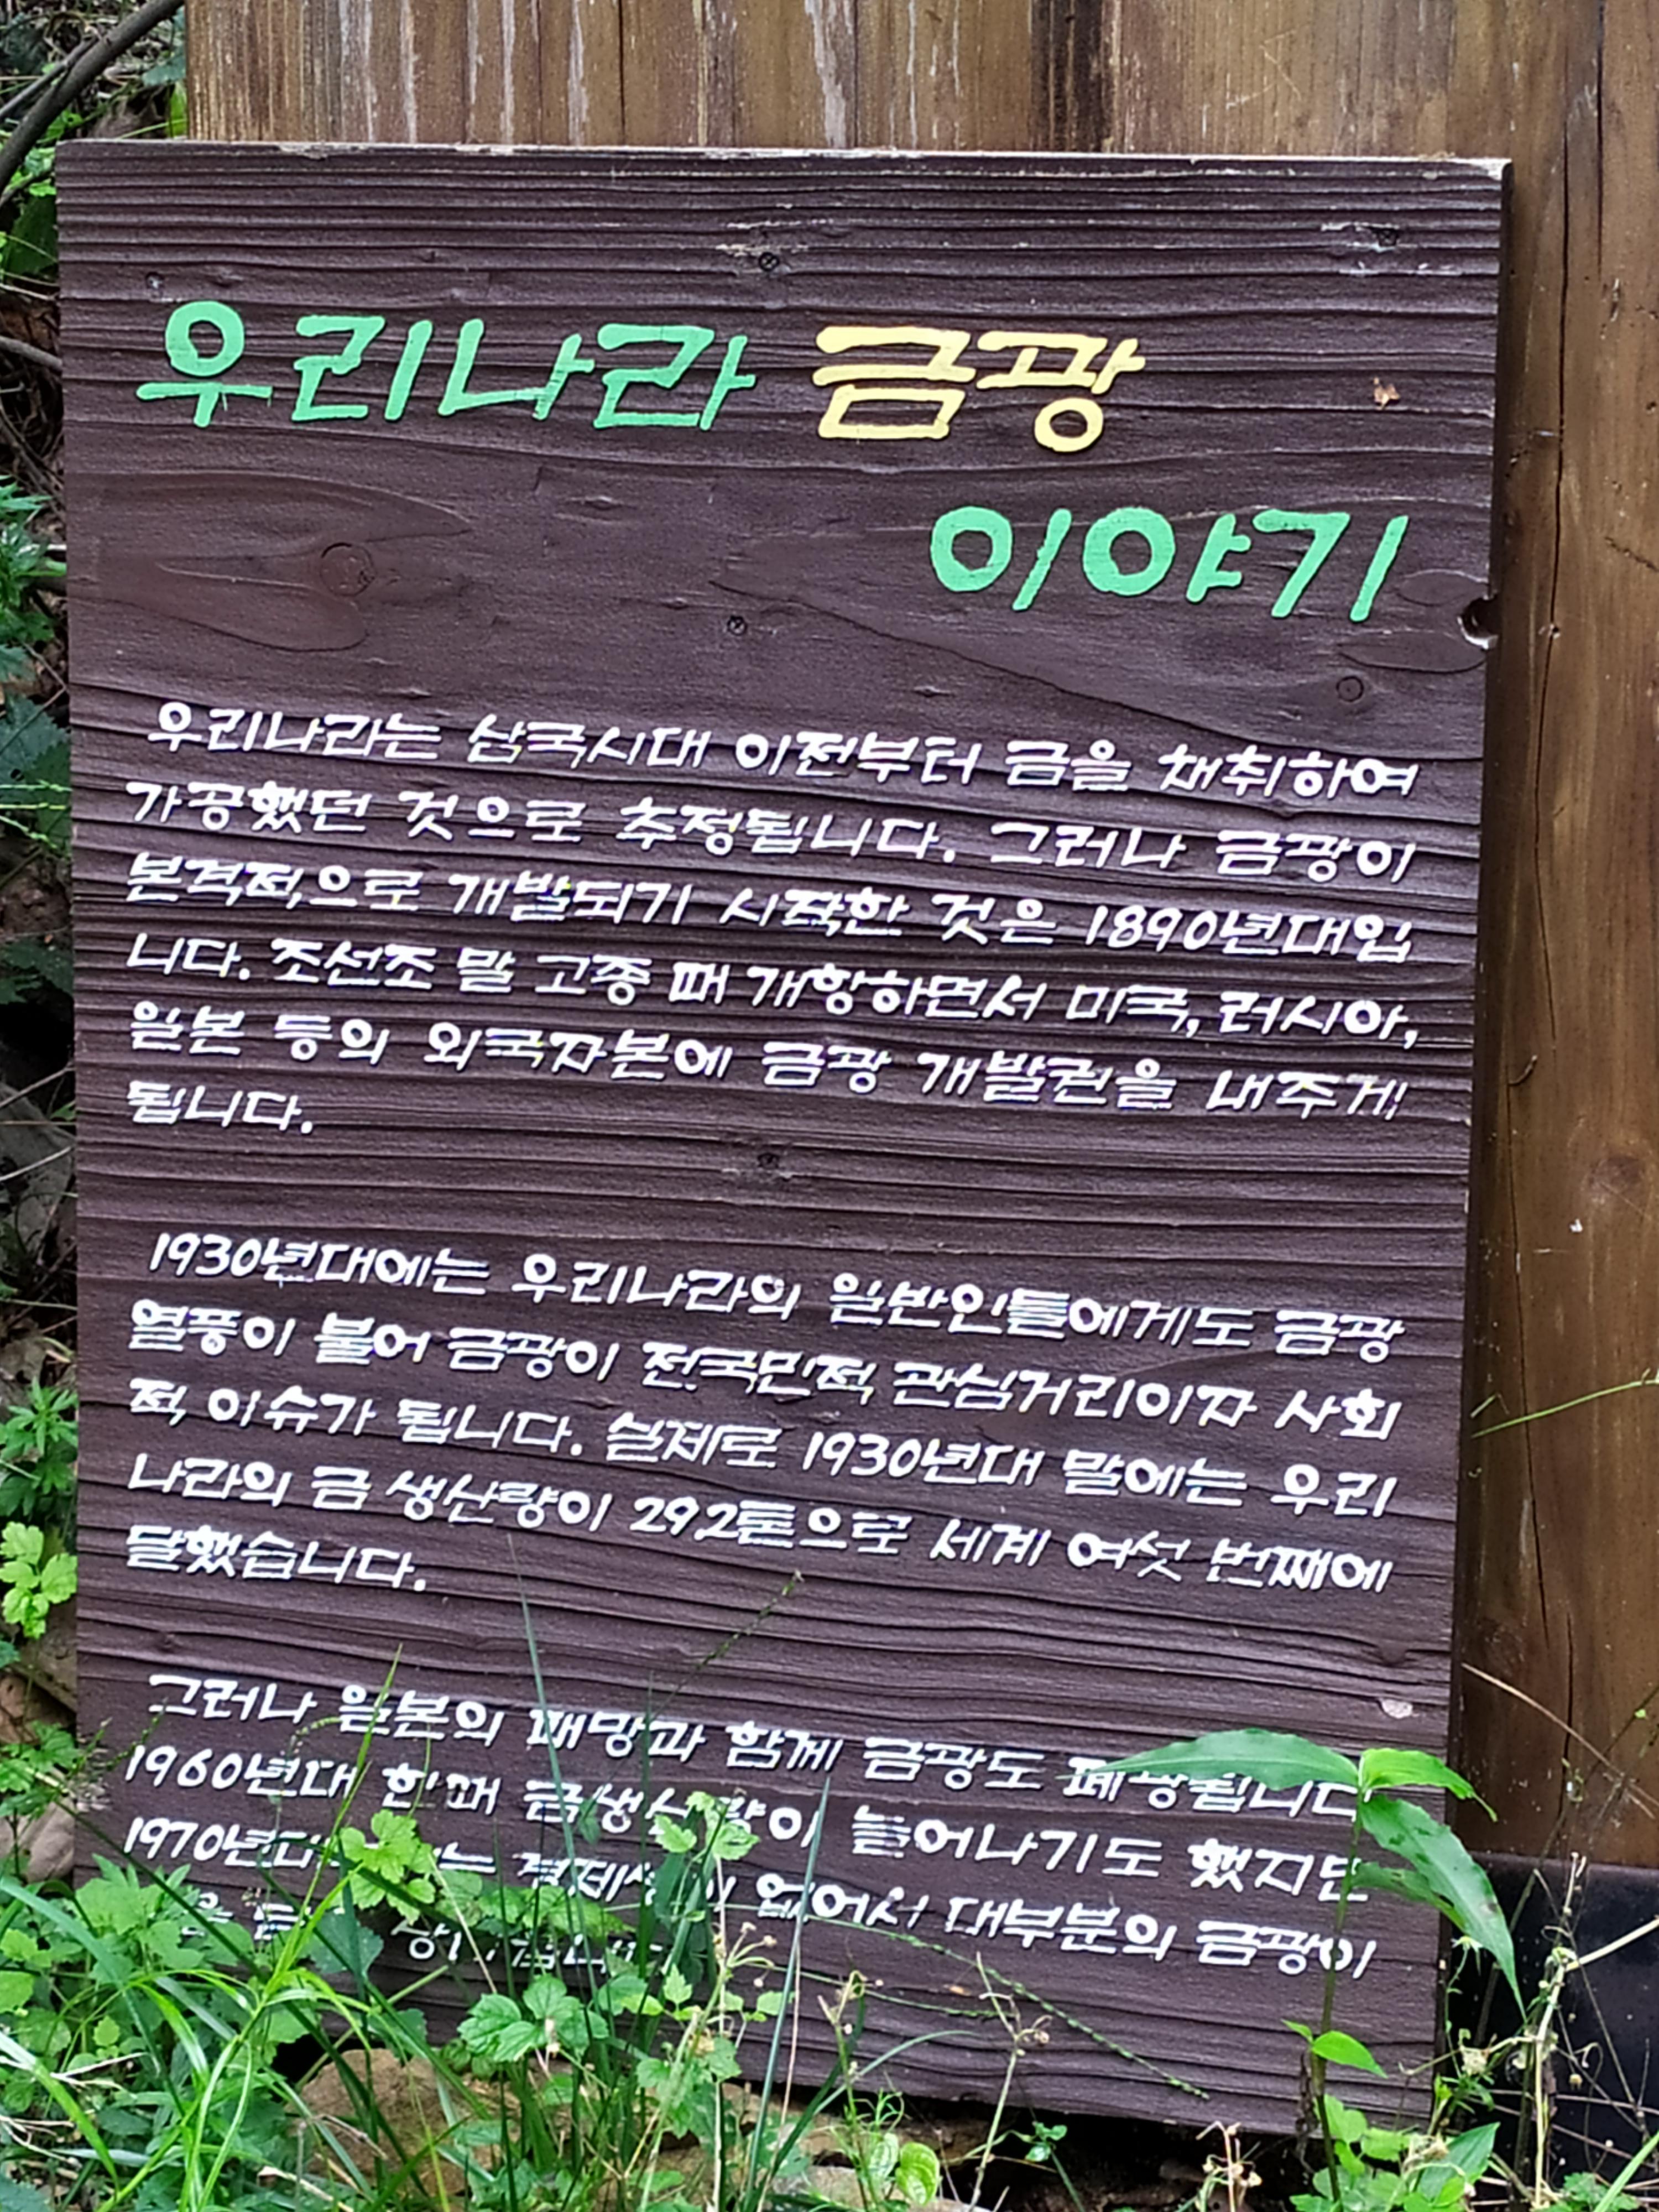 우리나라 금광
이야기
우리나라는 삼국시대 이전부터 금을 채취하여
가공했던 것으로 추정됩니다. 그러나 금광이
본격적으로 개발되기 시작한 것은 1890년대입
니다. 조선조 말 고종 때 개항하면서 미국, 러시아,
일본 등의 외국자본에 금광 개발권을 내주게
됩니다.
1930년대에는 우리나라의 일반인들에게도 금광
열풍이 불어 금광이 전국민적 관심거리이자 사회
적 이슈가 됩니다. 실제로 1930년대 말에는 우리
나라의 금 생산량이 292톤으로 세계 여섯 번째에
달했습니다.
그러나 일본의 패망과 함께 금광도 폐광됩니다
1960년대 한때 금생산량이 늘어나기도 했지만
1970년대 없어서 대부분의 금광이